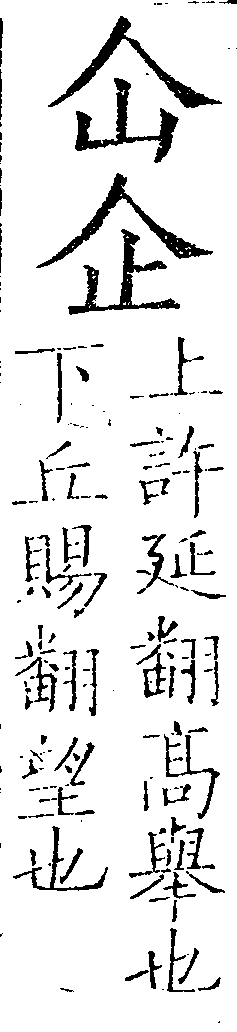 仚企
上許延翻高舉也
下丘賜翻望也